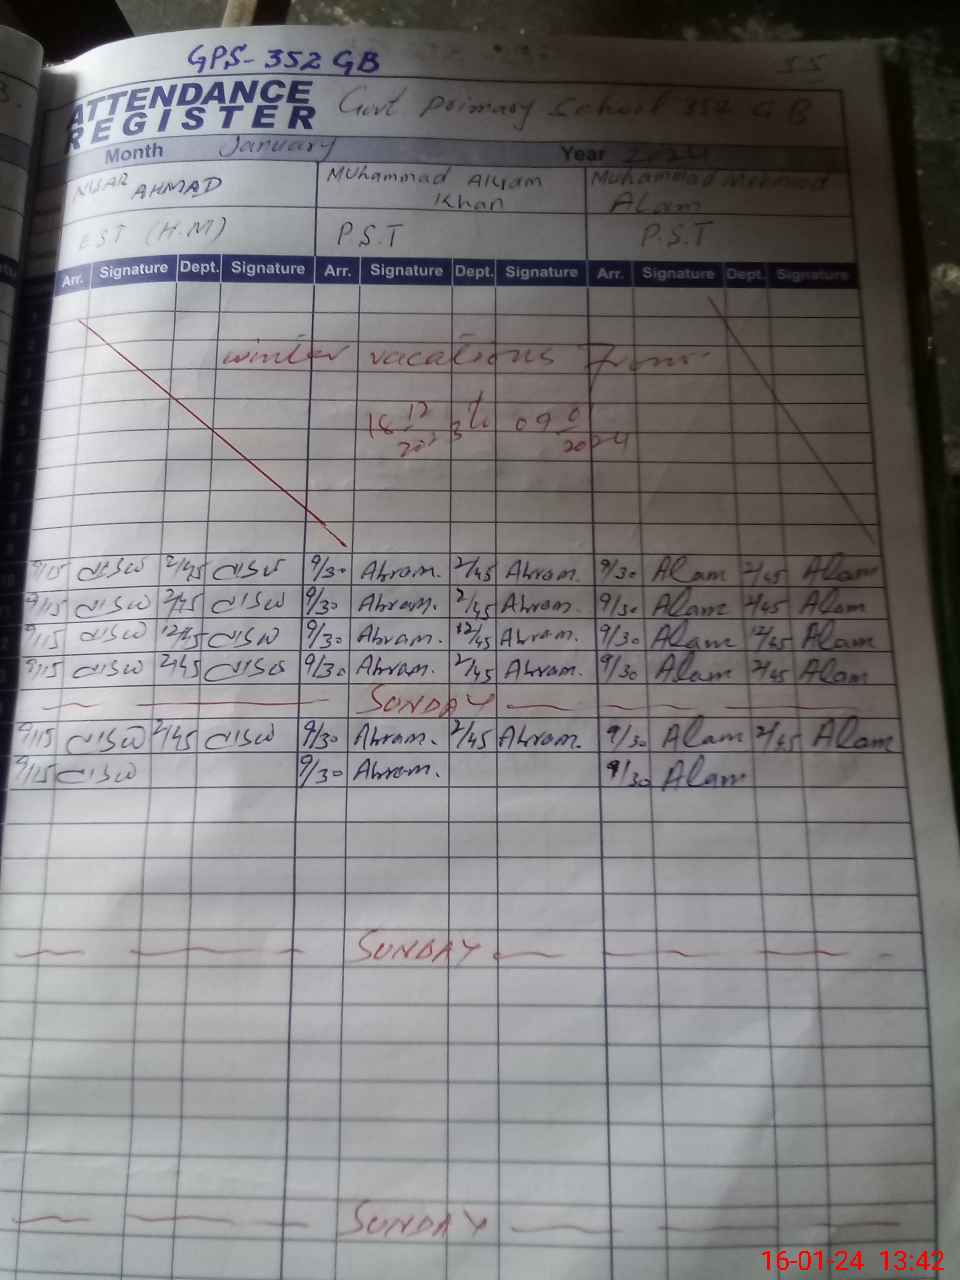 GPS- 352 GB
ATTENDANCE REGISTER Govt Primary School 352 GB
Month January Year 2024
NISAR AHMAD Muhammad Akram Khan Muhammad Mehmood Alam
EST (H.M) P.S.T P.S.T
Arr. Signature Dept. Signature Arr. Signature Dept. Signature Arr. Signature Dept. Signature
winter vacations From
18 12 2023 to 09 2024
9/15 2/45 9/30 Akram. 2/45 Akram. 9/30 Alam 2/45 Alam
9/15 2/45 9/30 Akram. 2/45 Akram. 9/30 Alam 2/45 Alam
9/15 12/45 9/30 Akram. 12/45 Akram. 9/30 Alam 12/45 Alam
9/15 2/45 9/30 Akram. 2/45 Akram. 9/30 Alam 2/45 Alam
SUNDAY
9/15 2/45 9/30 Akram. 2/45 Akram. 9/30 Alam 2/45 Alam
9/15 9/30 Akram. 9/30 Alam
SUNDAY
SUNDAY
16-01-24 13:42